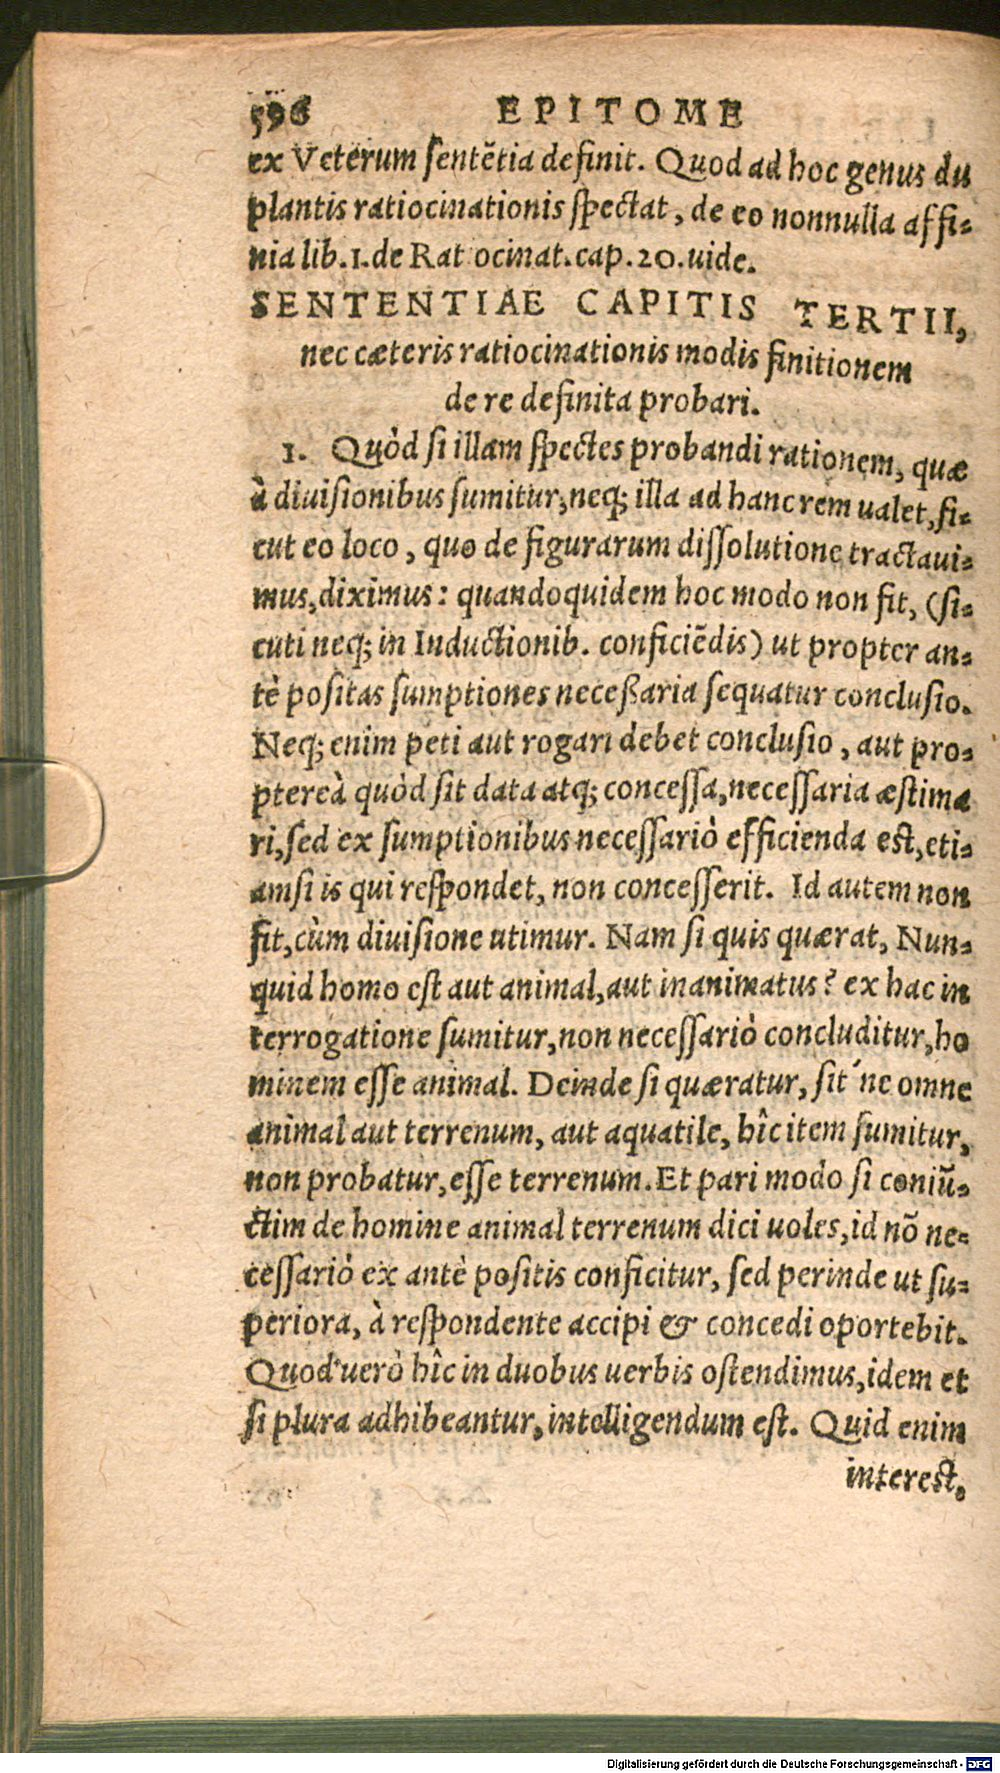 596 EPITOME
ex Veterum sentẽtia definit. Quod ad hoc genus du
plantis ratiocinationis spectat, de eo nonnulla affi-
nia lib. 1. de Rat ocinat. cap. 20. uide.
SENTENTIAE CAPITIS TERTII,
nec cæteris ratiocinationis modis finitionem
de re definita probari.
1. Quòd si illam spectes probandi rationem, quæ
à diuisionibus sumitur, neq; illa ad hanc rem ualet, si-
cut eo loco, quo de figurarum dissolutione tractaui-
mus, diximus: quandoquidem hoc modo non fit, (si-
cuti neq; in Inductionib. conficiẽdis) ut propter an-
tè positas sumptiones neceßaria sequatur conclusio.
Neq; enim peti aut rogari debet conclusio, aut pro-
ptereà quòd sit data atq; concessa, necessaria æstima
ri, sed ex sumptionibus necessariò efficienda est, eti-
amsi is qui respondet, non concesserit. Id autem non
fit, cùm diuisione utimur. Nam si quis quærat, Nun-
quid homo est aut animal, aut inanimatus? ex hac in
terrogatione sumitur, non necessariò concluditur, ho
minem esse animal. Deinde si quæratur, sit´ne omne
animal aut terrenum, aut aquatile, hîc item sumitur,
non probatur, esse terrenum. Et pari modo si coniũ-
ctim de homine animal terrenum dici uoles, id nõ ne-
cessariò ex antè positis conficitur, sed perinde ut su-
periora, à respondente accipi & concedi oportebit.
Quod uerò hîc in duobus uerbis ostendimus, idem et
si plura adhibeantur, intelligendum est. Quid enim
interest,
Digitalisierung gefördert durch die Deutsche Forschungsgemeinschaft - DFG